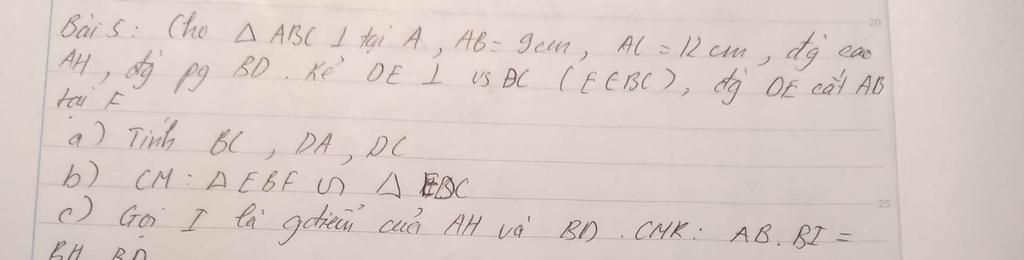 Bài 5: Cho Δ ABC ⊥ tại A, AB = 9cm, AC = 12 cm, đg cao
AH, đg pg BD. Kẻ DE ⊥ vs BC (E ∈ BC), đg DE cắt AB
tại F
a) Tính BC, DA, DC
b) CM: Δ EBF ∽ Δ EDC
c) Gọi I là gđiểm của AH và BD. CMR: AB. BI =
BH. BD
20
25